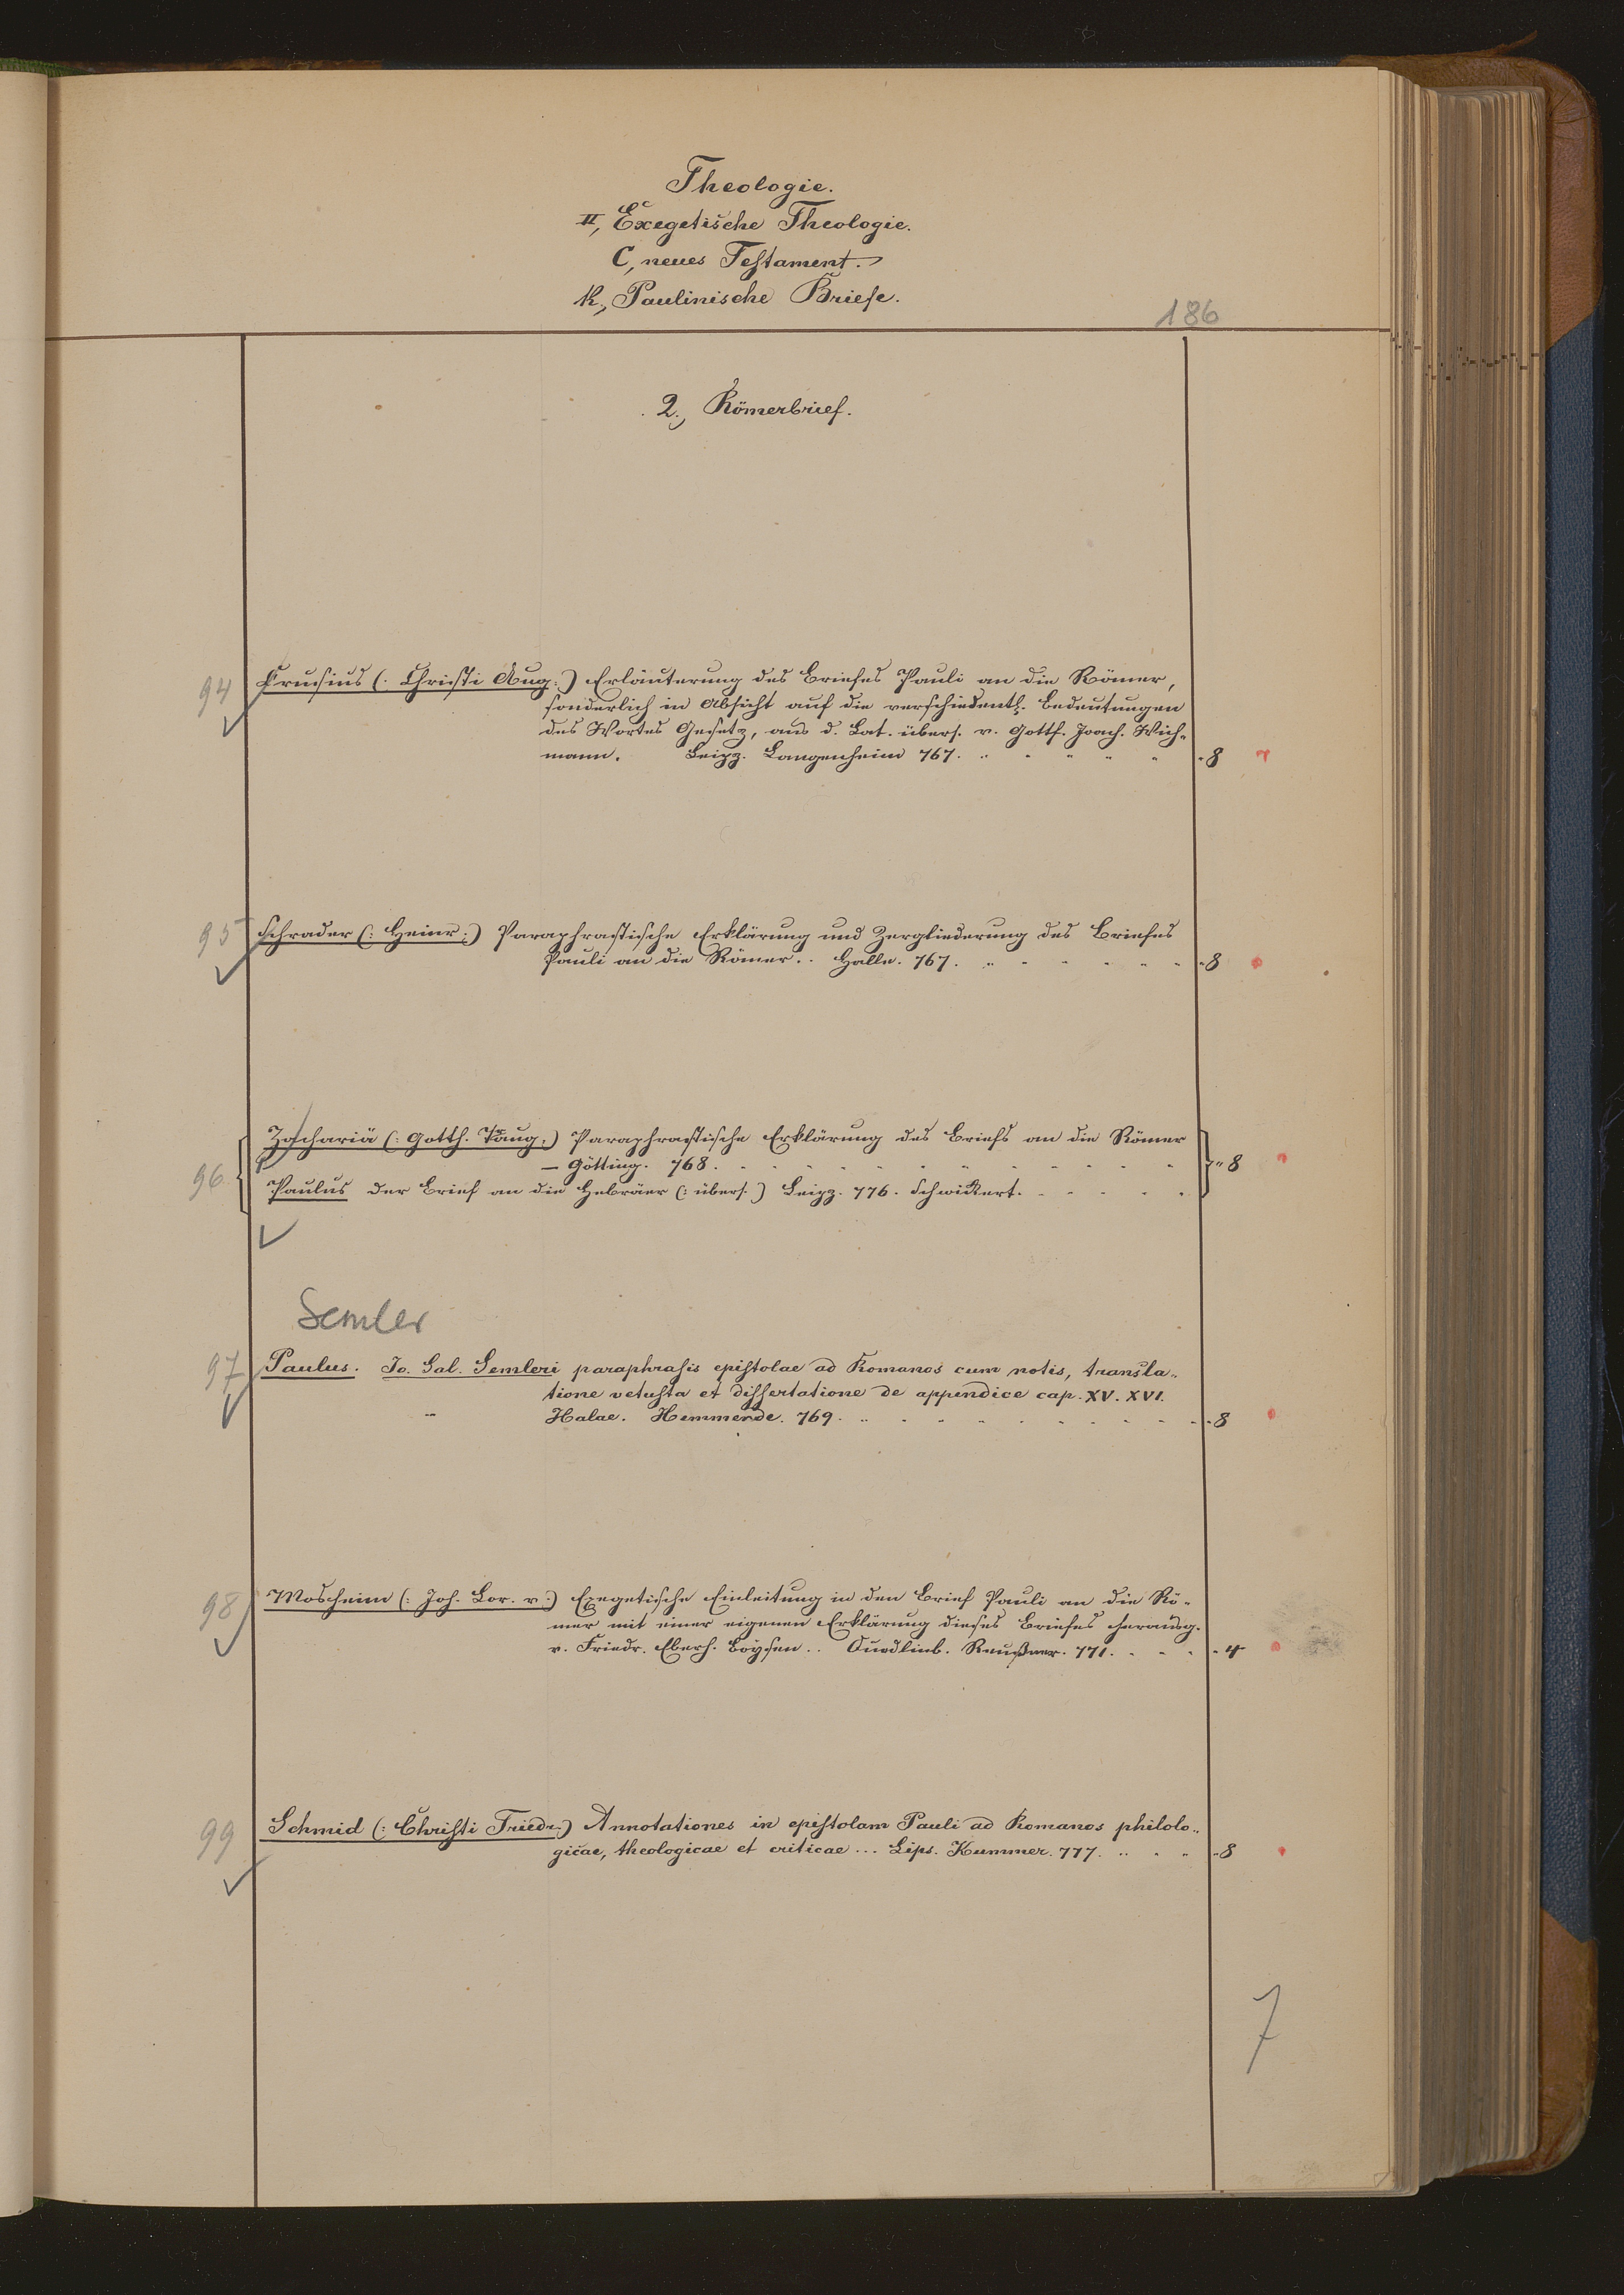 Theologie.
II, Exegetische Theologie.
C, neues Testament.
k., Paulinische Briefe.
186
2., Römerbrief.
94 Crusius (: Christi Aug:) Erläuterung des Briefes Pauli an die Römer,
sonderlich in Absicht auf die verschiedentl. Bedeutungen
des Wortes Gesetz, aus d. Lat. übers. v. Gottf. Joach. Wich-
mann. Leipz. Langenheim 767. 8
95 Schrader (: Heinr:) Paraphrastische Erklärung und Zergliederung des Briefes
Pauli an die Römer.. Halle. 767. 8
Zachariä (: Gotth. Traug:) Paraphrastische Erklärung des Briefs an die Römer
– Götting. 768. 8
96 Paulus der Brief an die Hebräer (: übers.) Leipz. 776. Schwickert.
Semler
97 Paulus. Jo. Sal. Semleri paraphrasis epistolae ad Romanos cum notis, transla-
tione vetusta et dissertatione de appendice cap. XV. XVI.
Halae. Hemmerde. 769. 8
98 Mosheim (: Joh. Lor. v:) Exegetische Einleitung in den Brief Pauli an die Rö-
mer mit einer eigenen Erklärung dieses Briefes herausg.
v. Friedr. Eberh. Boysen.. Quedlinb. Reußner. 771. 4
99 Schmid (: Christi Friedr:) Annotationes in epistolam Pauli ad Romanos philolo-
gicae, theologicae et criticae... Lips. Kummer. 777. 8
7